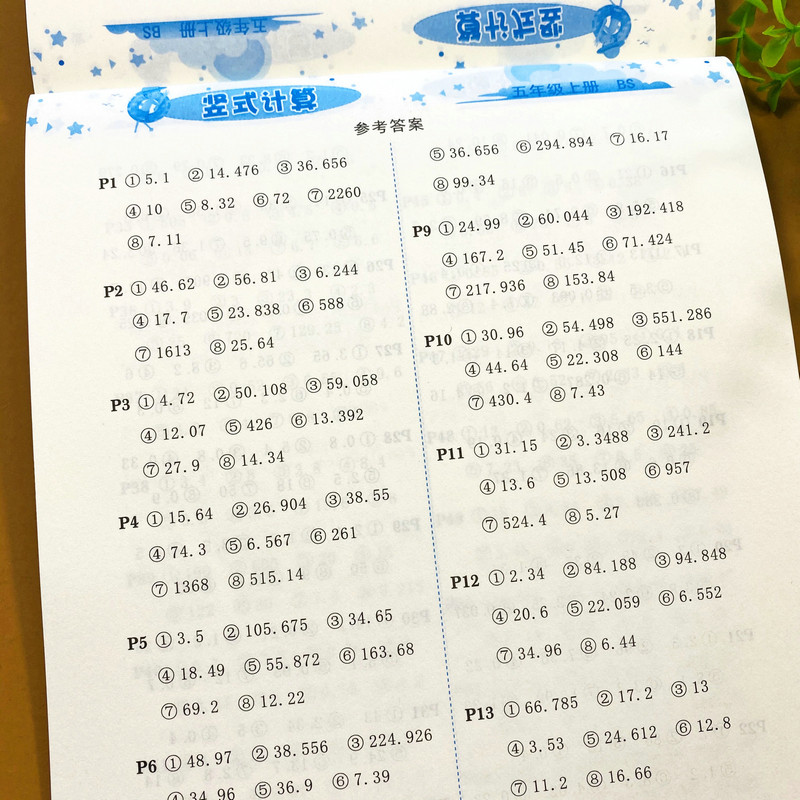 五年级上册 BS
竖式计算
竖式计算
五年级上册 BS
参考答案
P1 ①5.1 ②14.476 ③36.656
④10 ⑤8.32 ⑥72 ⑦2260
⑧7.11
P2 ①46.62 ②56.81 ③6.244
④17.7 ⑤23.838 ⑥588
⑦1613 ⑧25.64
P3 ①4.72 ②50.108 ③59.058
④12.07 ⑤426 ⑥13.392
⑦27.9 ⑧14.34
P4 ①15.64 ②26.904 ③38.55
④74.3 ⑤6.567 ⑥261
⑦1368 ⑧515.14
P5 ①3.5 ②105.675 ③34.65
④18.49 ⑤55.872 ⑥163.68
⑦69.2 ⑧12.22
P6 ①48.97 ②38.556 ③224.926
④34.96 ⑤36.9 ⑥7.39
⑤36.656 ⑥294.894 ⑦16.17
⑧99.34
P9 ①24.99 ②60.044 ③192.418
④167.2 ⑤51.45 ⑥71.424
⑦217.936 ⑧153.84
P10 ①30.96 ②54.498 ③551.286
④44.64 ⑤22.308 ⑥144
⑦430.4 ⑧7.43
P11 ①31.15 ②3.3488 ③241.2
④13.6 ⑤13.508 ⑥957
⑦524.4 ⑧5.27
P12 ①2.34 ②84.188 ③94.848
④20.6 ⑤22.059 ⑥6.552
⑦34.96 ⑧6.44
P13 ①66.785 ②17.2 ③13
④3.53 ⑤24.612 ⑥12.8
⑦11.2 ⑧16.66